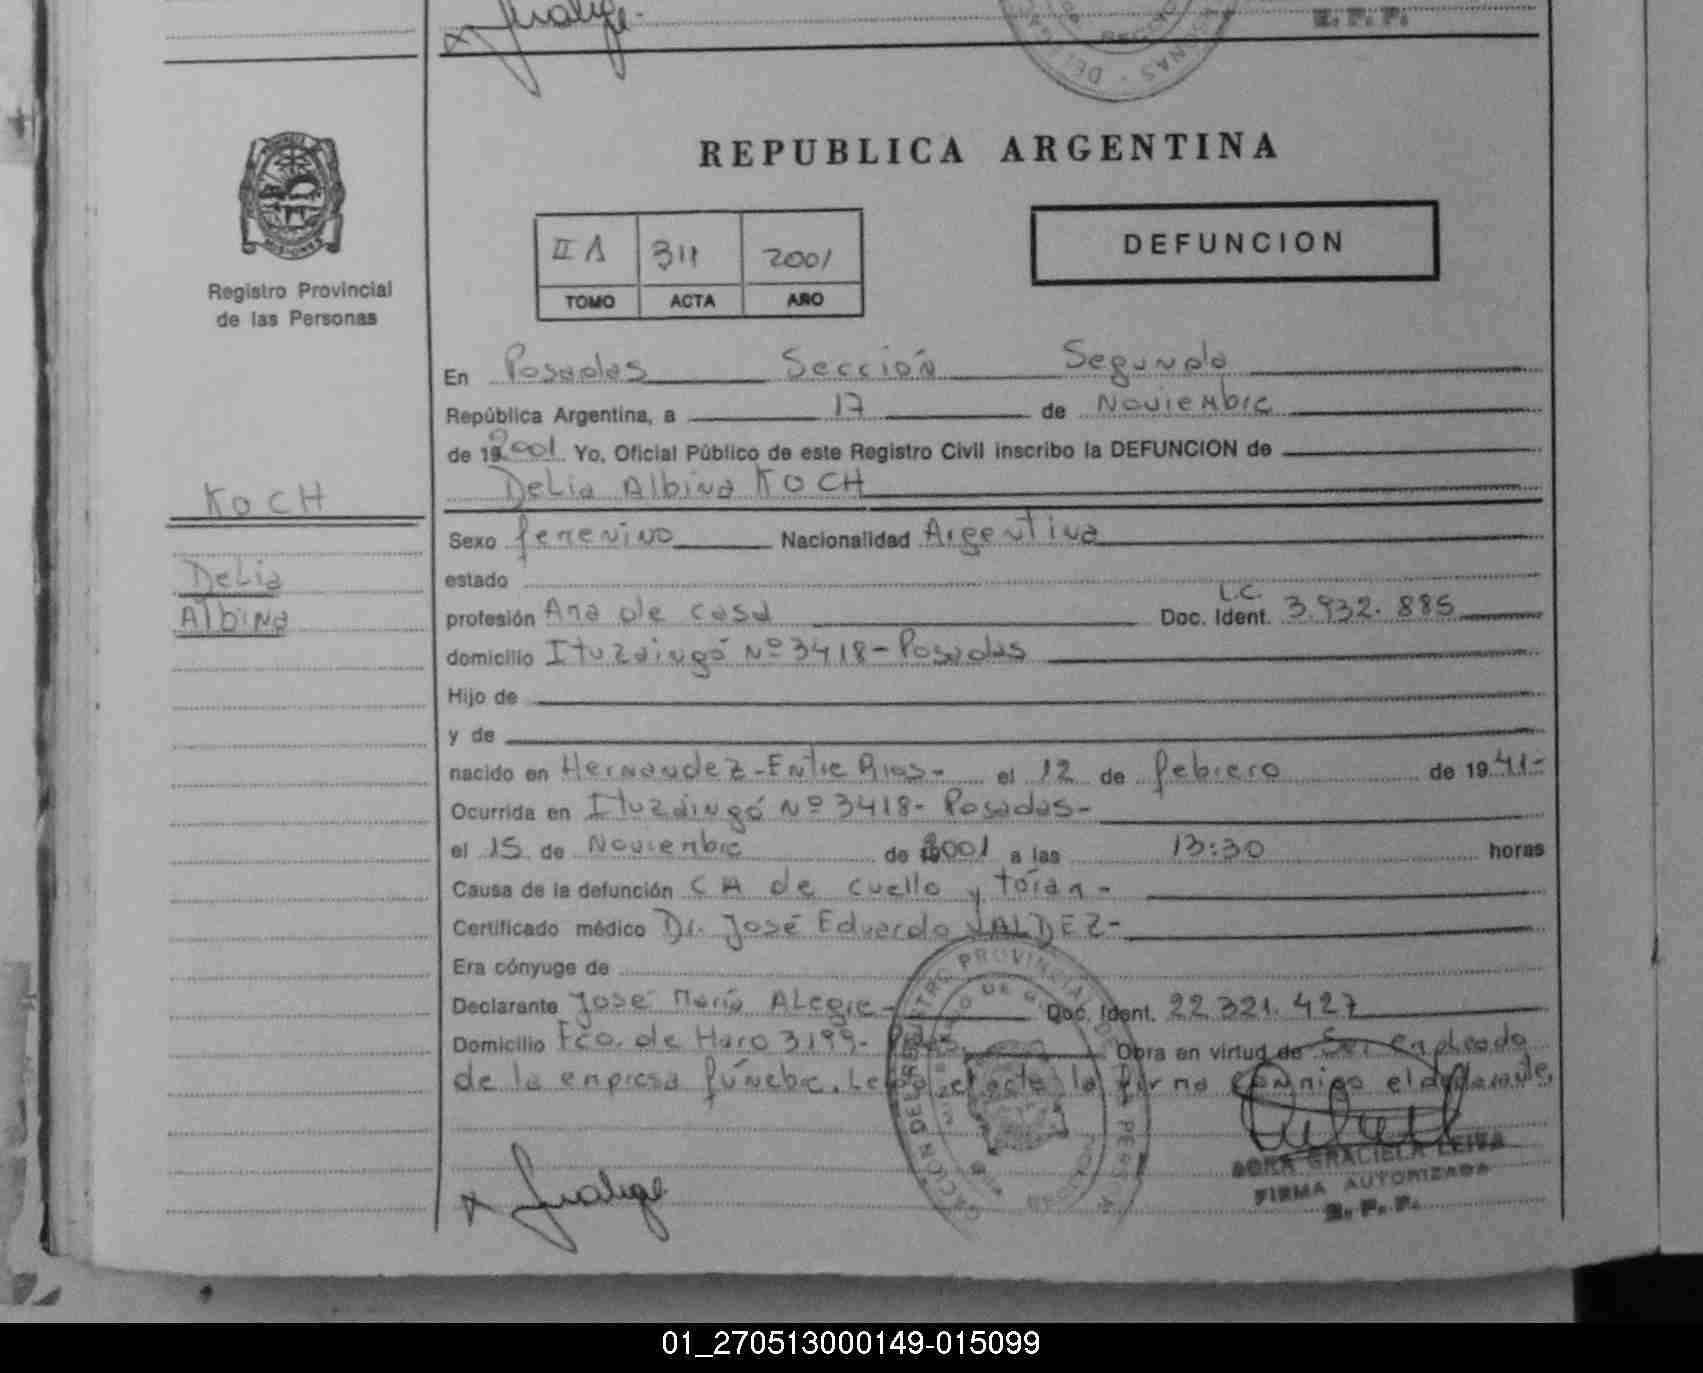 R. P. P.
REPUBLICA ARGENTINA
II A 311 2001
TOMO ACTA AÑO
DEFUNCION
Registro Provincial
de las Personas
En Posadas Sección Segunda
República Argentina, a 17 de Noviembre
de 192001 Yo, Oficial Público de este Registro Civil inscribo la DEFUNCION de
Delia Albina KOCH
KOCH
Delia
Albina
Sexo femenino Nacionalidad Argentina
estado
profesión Ama de casa Doc. Ident. L.C. 3.932.885
domicilio Ituzaingó Nº 3418 - Posadas
Hijo de
y de
nacido en Hernandez - Entre Rios - el 12 de febrero de 1941-
Ocurrida en Ituzaingó Nº 3418 - Posadas -
el 15 de Noviembre de 2001 a las 13:30 horas
Causa de la defunción CA de cuello y tórax -
Certificado médico Dr. José Eduardo VALDEZ -
Era cónyuge de
Declarante José María ALegre - Doc. Ident. 22.321.427
Domicilio Fco. de Haro 3199 - Obra en virtud de Ser empleado
de la empresa fúnebre. Leída el acta la firma conmigo el declarante.
GRACIELA LEIVA
FIRMA AUTORIZADA
R. P. P.
01_270513000149-015099